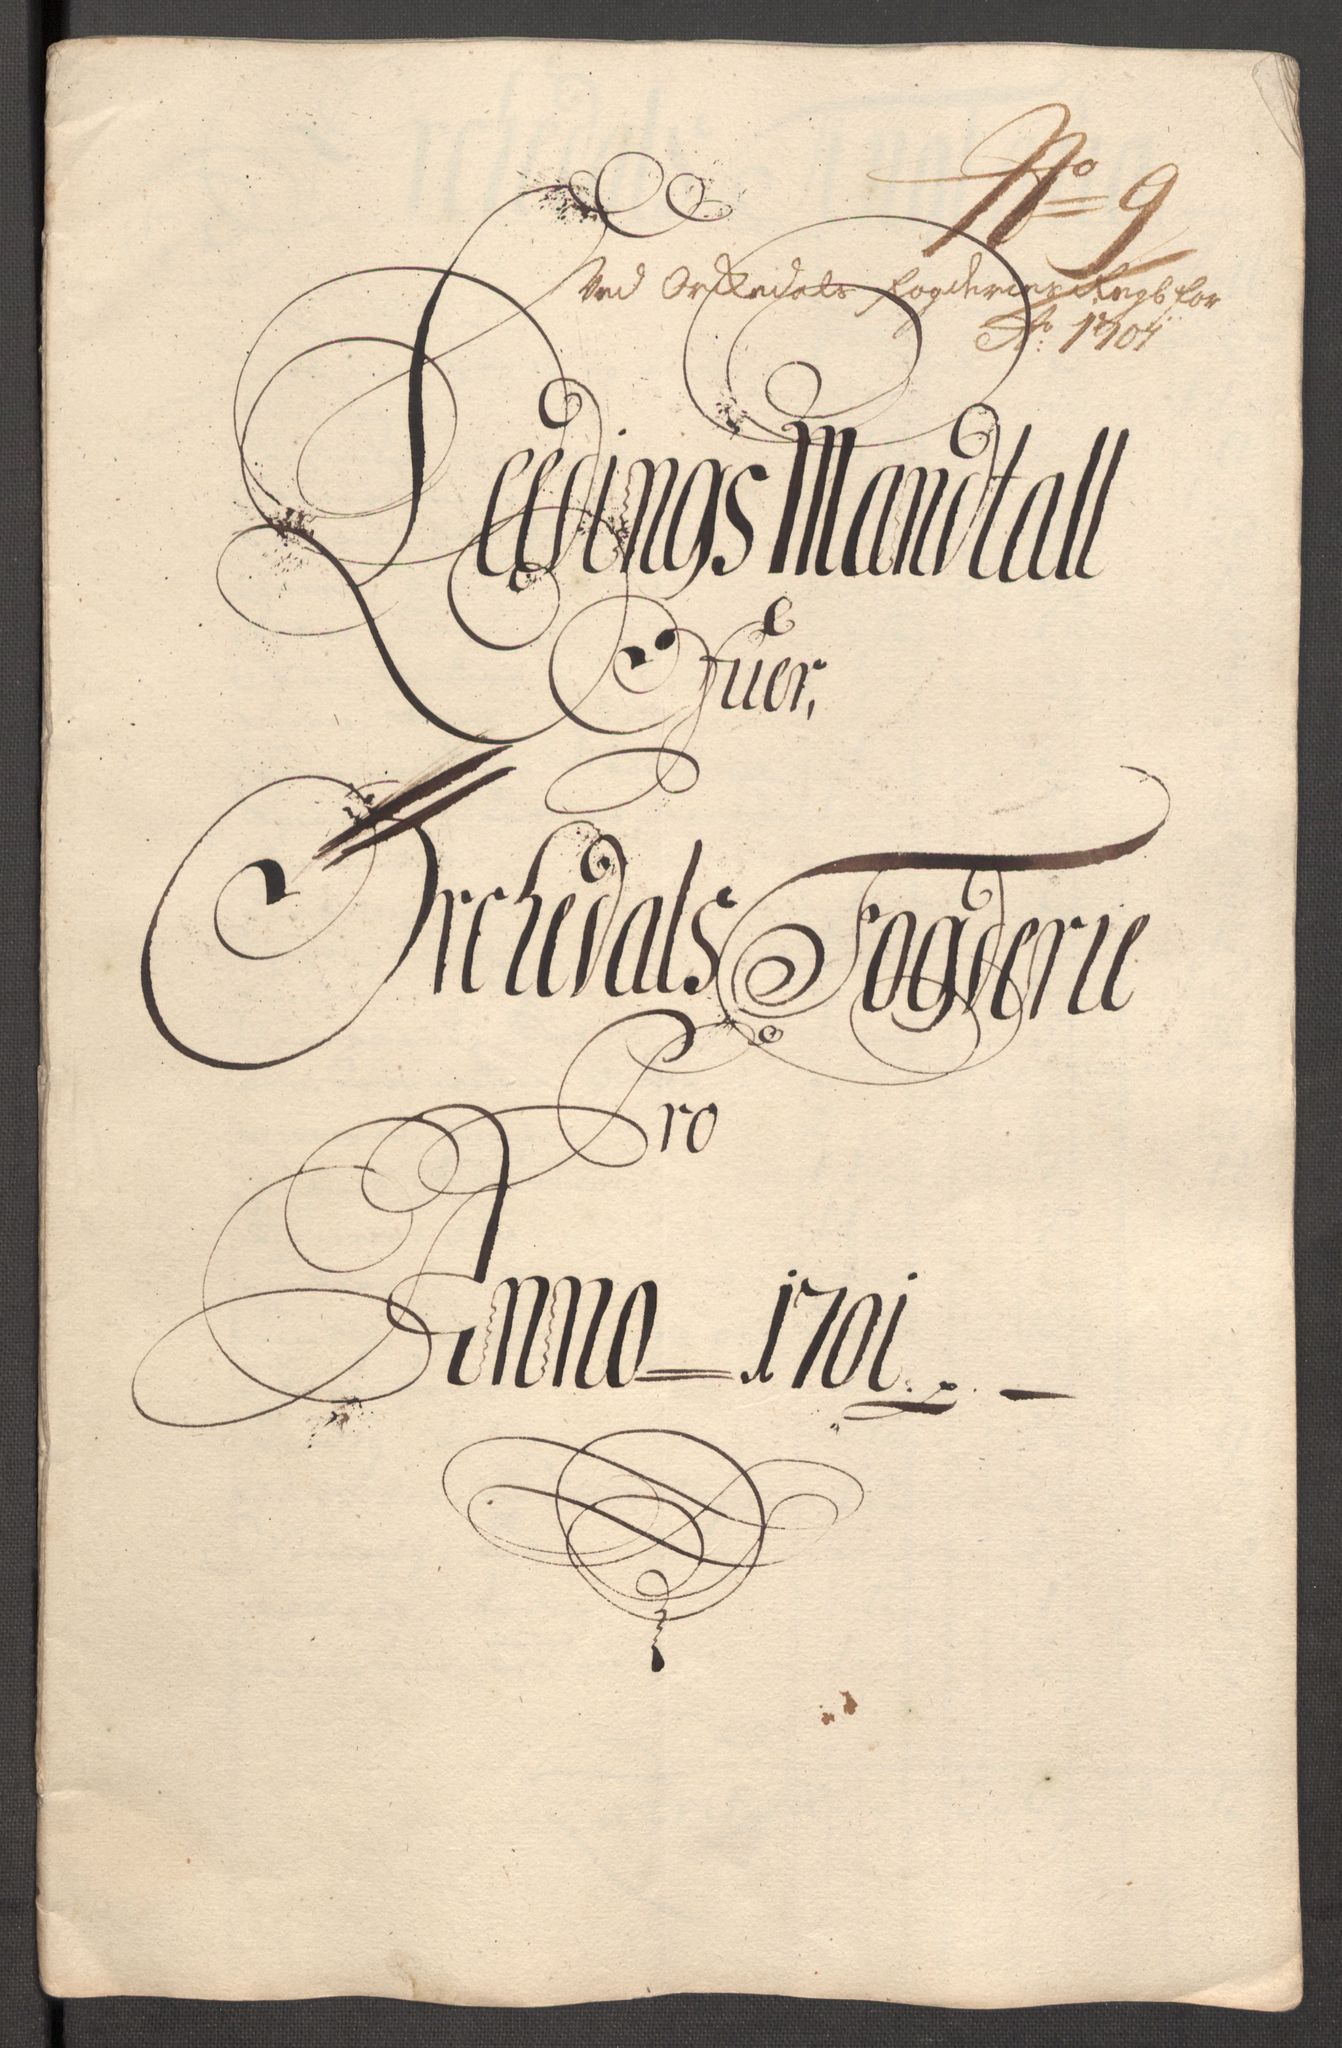 No 9
Ved Orkedals fogderies Regsk for
Ao. 1701
Leedings Mandtall
Ofuer,
Orchedals Fogderie
Pro
Anno 1701.